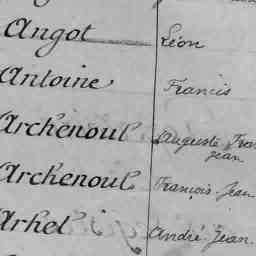 Angot Léon
Antoine Francis
Archenoul Auguste Fran
Jean
Archenoul François-Jean
Arhel André-Jean.